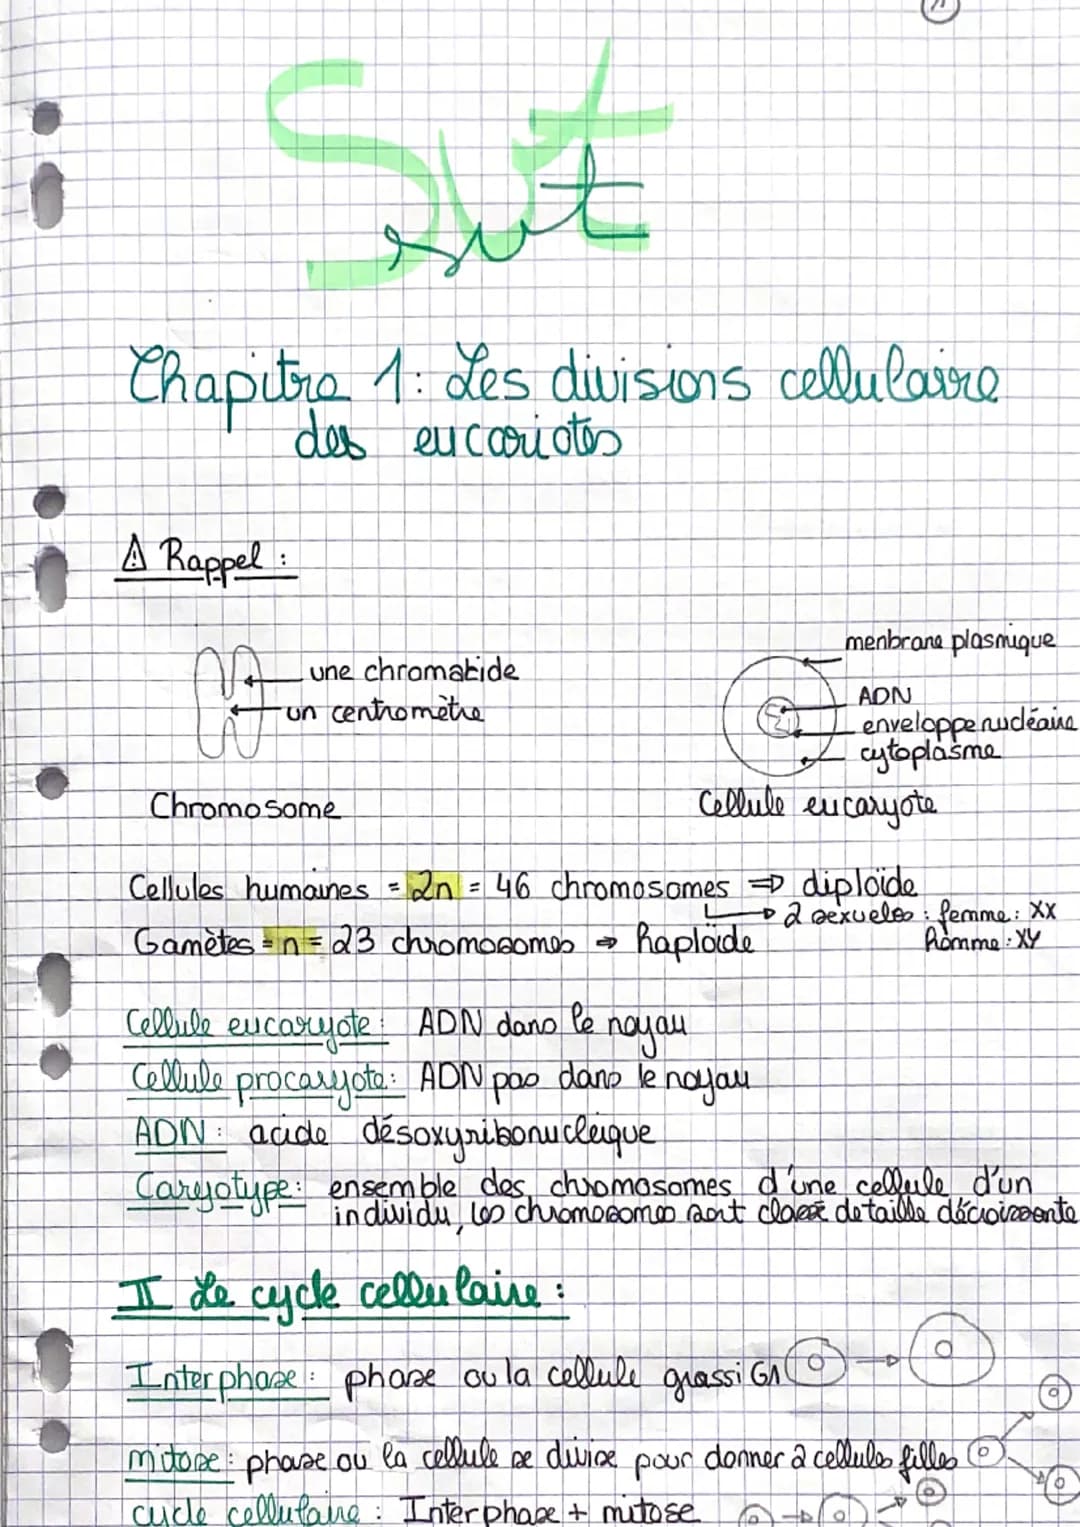 11
Svt
svt
Chapitre 1: Les divisions cellulaire
des eucariotes
⚠ Rappel :
une chromatide
un centromètre
Chromosome
menbrane plasmique
ADN
enveloppe nucléaire
cytoplasme
Cellule eucaryote
Cellules humaines = 2n = 46 chromosomes ⇒ diploïde
→ 2 sexuelles : femme : XX
homme : XY
Gamètes = n = 23 chromosomes → haploïde
Cellule eucaryote : ADN dans le noyau
Cellule procaryote : ADN pas dans le noyau
ADN : acide désoxyribonucléique
Caryotype : ensemble des chromosomes d'une cellule d'un
individu, les chromosomes sont classé de taille décroissante
II Le cycle cellulaire :
Interphase : phase ou la cellule grassi G1
mitose : phase ou la cellule se divise pour donner 2 cellules filles
cycle cellulaire : Interphase + mitose